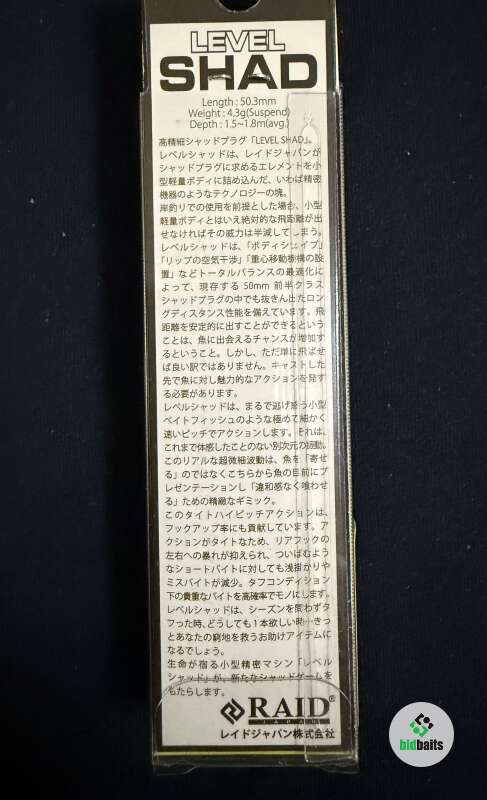 LEVEL
SHAD
Length : 50.3mm
Weight : 4.3g(Suspend)
Depth : 1.5~1.8m(avg.)
高精細シャッドプラグ「LEVEL SHAD」。
レベルシャッドは、レイドジャパンが
シャッドプラグに求めるエレメントを小
型軽量ボディに詰め込んだ、いわば精密
機器のようなテクノロジーの塊。
岸釣りでの使用を前提とした場合、小型
軽量ボディとはいえ絶対的な飛距離が出
せなければその威力は半減してしまう。
レベルシャッドは、「ボディシェイプ」
「リップの空気干渉」「重心移動機構の設
置」などトータルバランスの最適化に
よって、現存する 50mm 前半クラス
シャッドプラグの中でも抜きん出たロン
グディスタンス性能を備えています。飛
距離を安定的に出すことができるという
ことは、魚に出会えるチャンスが増加す
るということ。しかし、ただ単に飛ばせ
ば良い訳ではありません。キャストした
先で魚に対し魅力的なアクションを発す
る必要があります。
レベルシャッドは、まるで逃げ惑う小型
ベイトフィッシュのような極めて細かく
速いピッチでアクションします。それは、
これまで体感したことのない別次元の振動。
このリアルな超微細波動は、魚を「寄せ
る」のではなくこちらから魚の目前にプ
レゼンテーションし「違和感なく喰わせ
る」ための精緻なギミック。
このタイトハイピッチアクションは、
フックアップ率にも貢献しています。ア
クションがタイトなため、リアフックの
左右への暴れが抑えられ、ついばむよう
なショートバイトに対しても浅掛かりや
ミスバイトが減少。タフコンディション
下の貴重なバイトを高確率でモノにします。
レベルシャッドは、シーズンを問わずタ
フった時、どうしても1本欲しい時…きっ
とあなたの窮地を救うお助けアイテムに
なるでしょう。
生命が宿る小型精密マシン「レベル
シャッド」が、新たなシャッドゲームを
もたらします。
RAID®
JAPAN
レイドジャパン株式会社
bidbaits